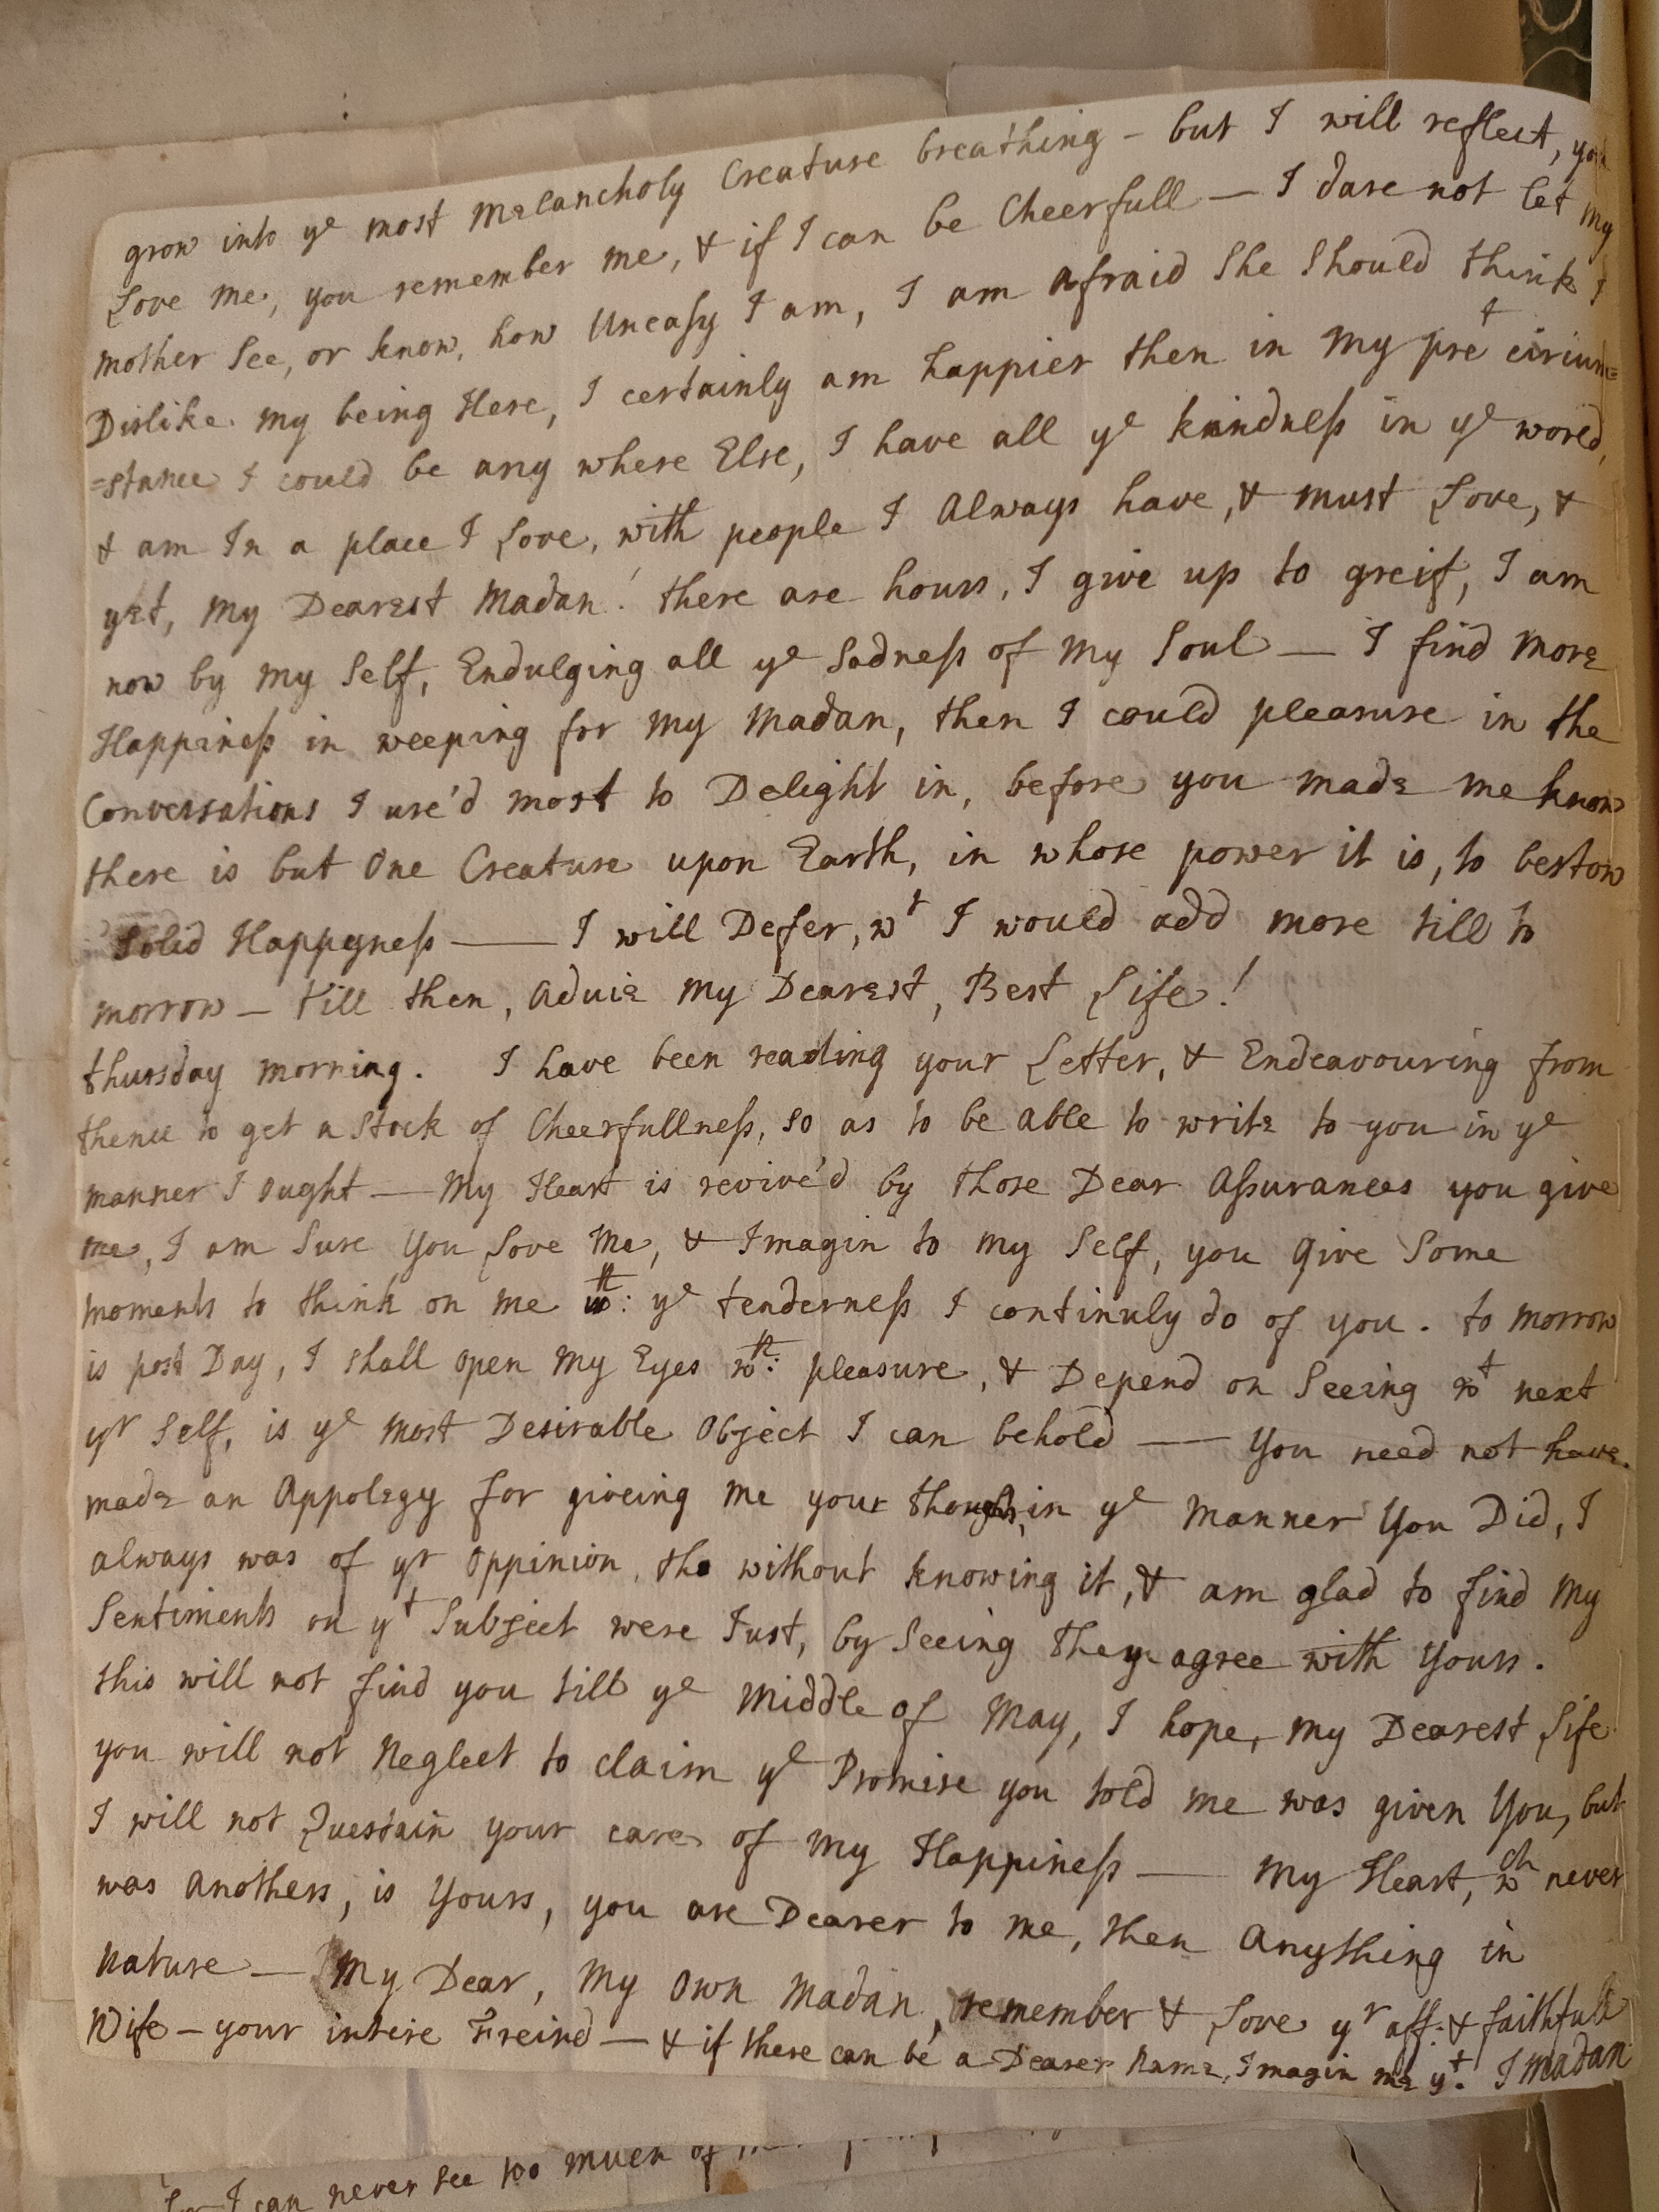 grow into ye most Melancholy Creature breathing - but I will reflect, you
Love me, you remember me, & if I can be Cheerfull — I dare not let my
mother See, or know, how Uneasy I am, I am afraid She Should think I
Dislike my being Here, I certainly am happier then in my pret circum=
=stance I could be any where Else, I have all ye kindness in ye world,
& am In a place I Love, with people I Always have, & must Love, &
yet, My Dearest Madan! there are hours, I give up to greif, I am
now by my Self, Endulging all ye Sadness of My Soul — I find more
Happiness in weeping for my Madan, then I could pleasure in the
Conversations I use'd most to Delight in, before you made me know
there is but One Creature upon Earth, in whose power it is, to bestow
Solid Happyness — I will Defer, wt I would add more till to
morrow — till then, Aduie My Dearest, Best Life!
thursday morning. I have been reading your Letter, & Endeavouring from
thence to get a Stock of Cheerfullness, so as to be Able to write to you in ye
manner I Ought — My Heart is revive'd by those Dear Assurances you give
me, I am Sure You Love Me, & Imagin to my Self, you Give Some
moments to think on me wth: ye tenderness I continuly do of you. to morrow
is post Day, I shall Open My Eyes wth: pleasure, & Depend on Seeing wt next
yr Self, is ye Most Desirable Object I can behold — You need not have
made an Appology for giveing me your thoughts, in ye Manner You Did, I
always was of yr Oppinion, tho without knowing it, & am glad to find My
Sentiments on yt Subject were Just, by Seeing they agree with Yours.
this will not find you till ye Middle of May, I hope, my Dearest Life
you will not Neglect to claim ye Promise you told me was given You, but
I will not Questain your care of my Happiness — My Heart, wch never
was Anothers, is Yours, you are Dearer to me, then Anything in
Nature — My Dear, My Own Madan, remember & Love yr aff: & faithfull
Wife — your intire Freind — & if there can be a Dearer Name, Imagin me yt. J Madan
I can never see too much of